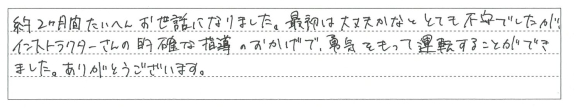 約2ヶ月間たいへんお世話になりました。最初は大丈夫かなととても不安でしたが、
インストラクターさんの的確な指導のおかげで、勇気をもって運転することができ
ました。ありがとうございます。